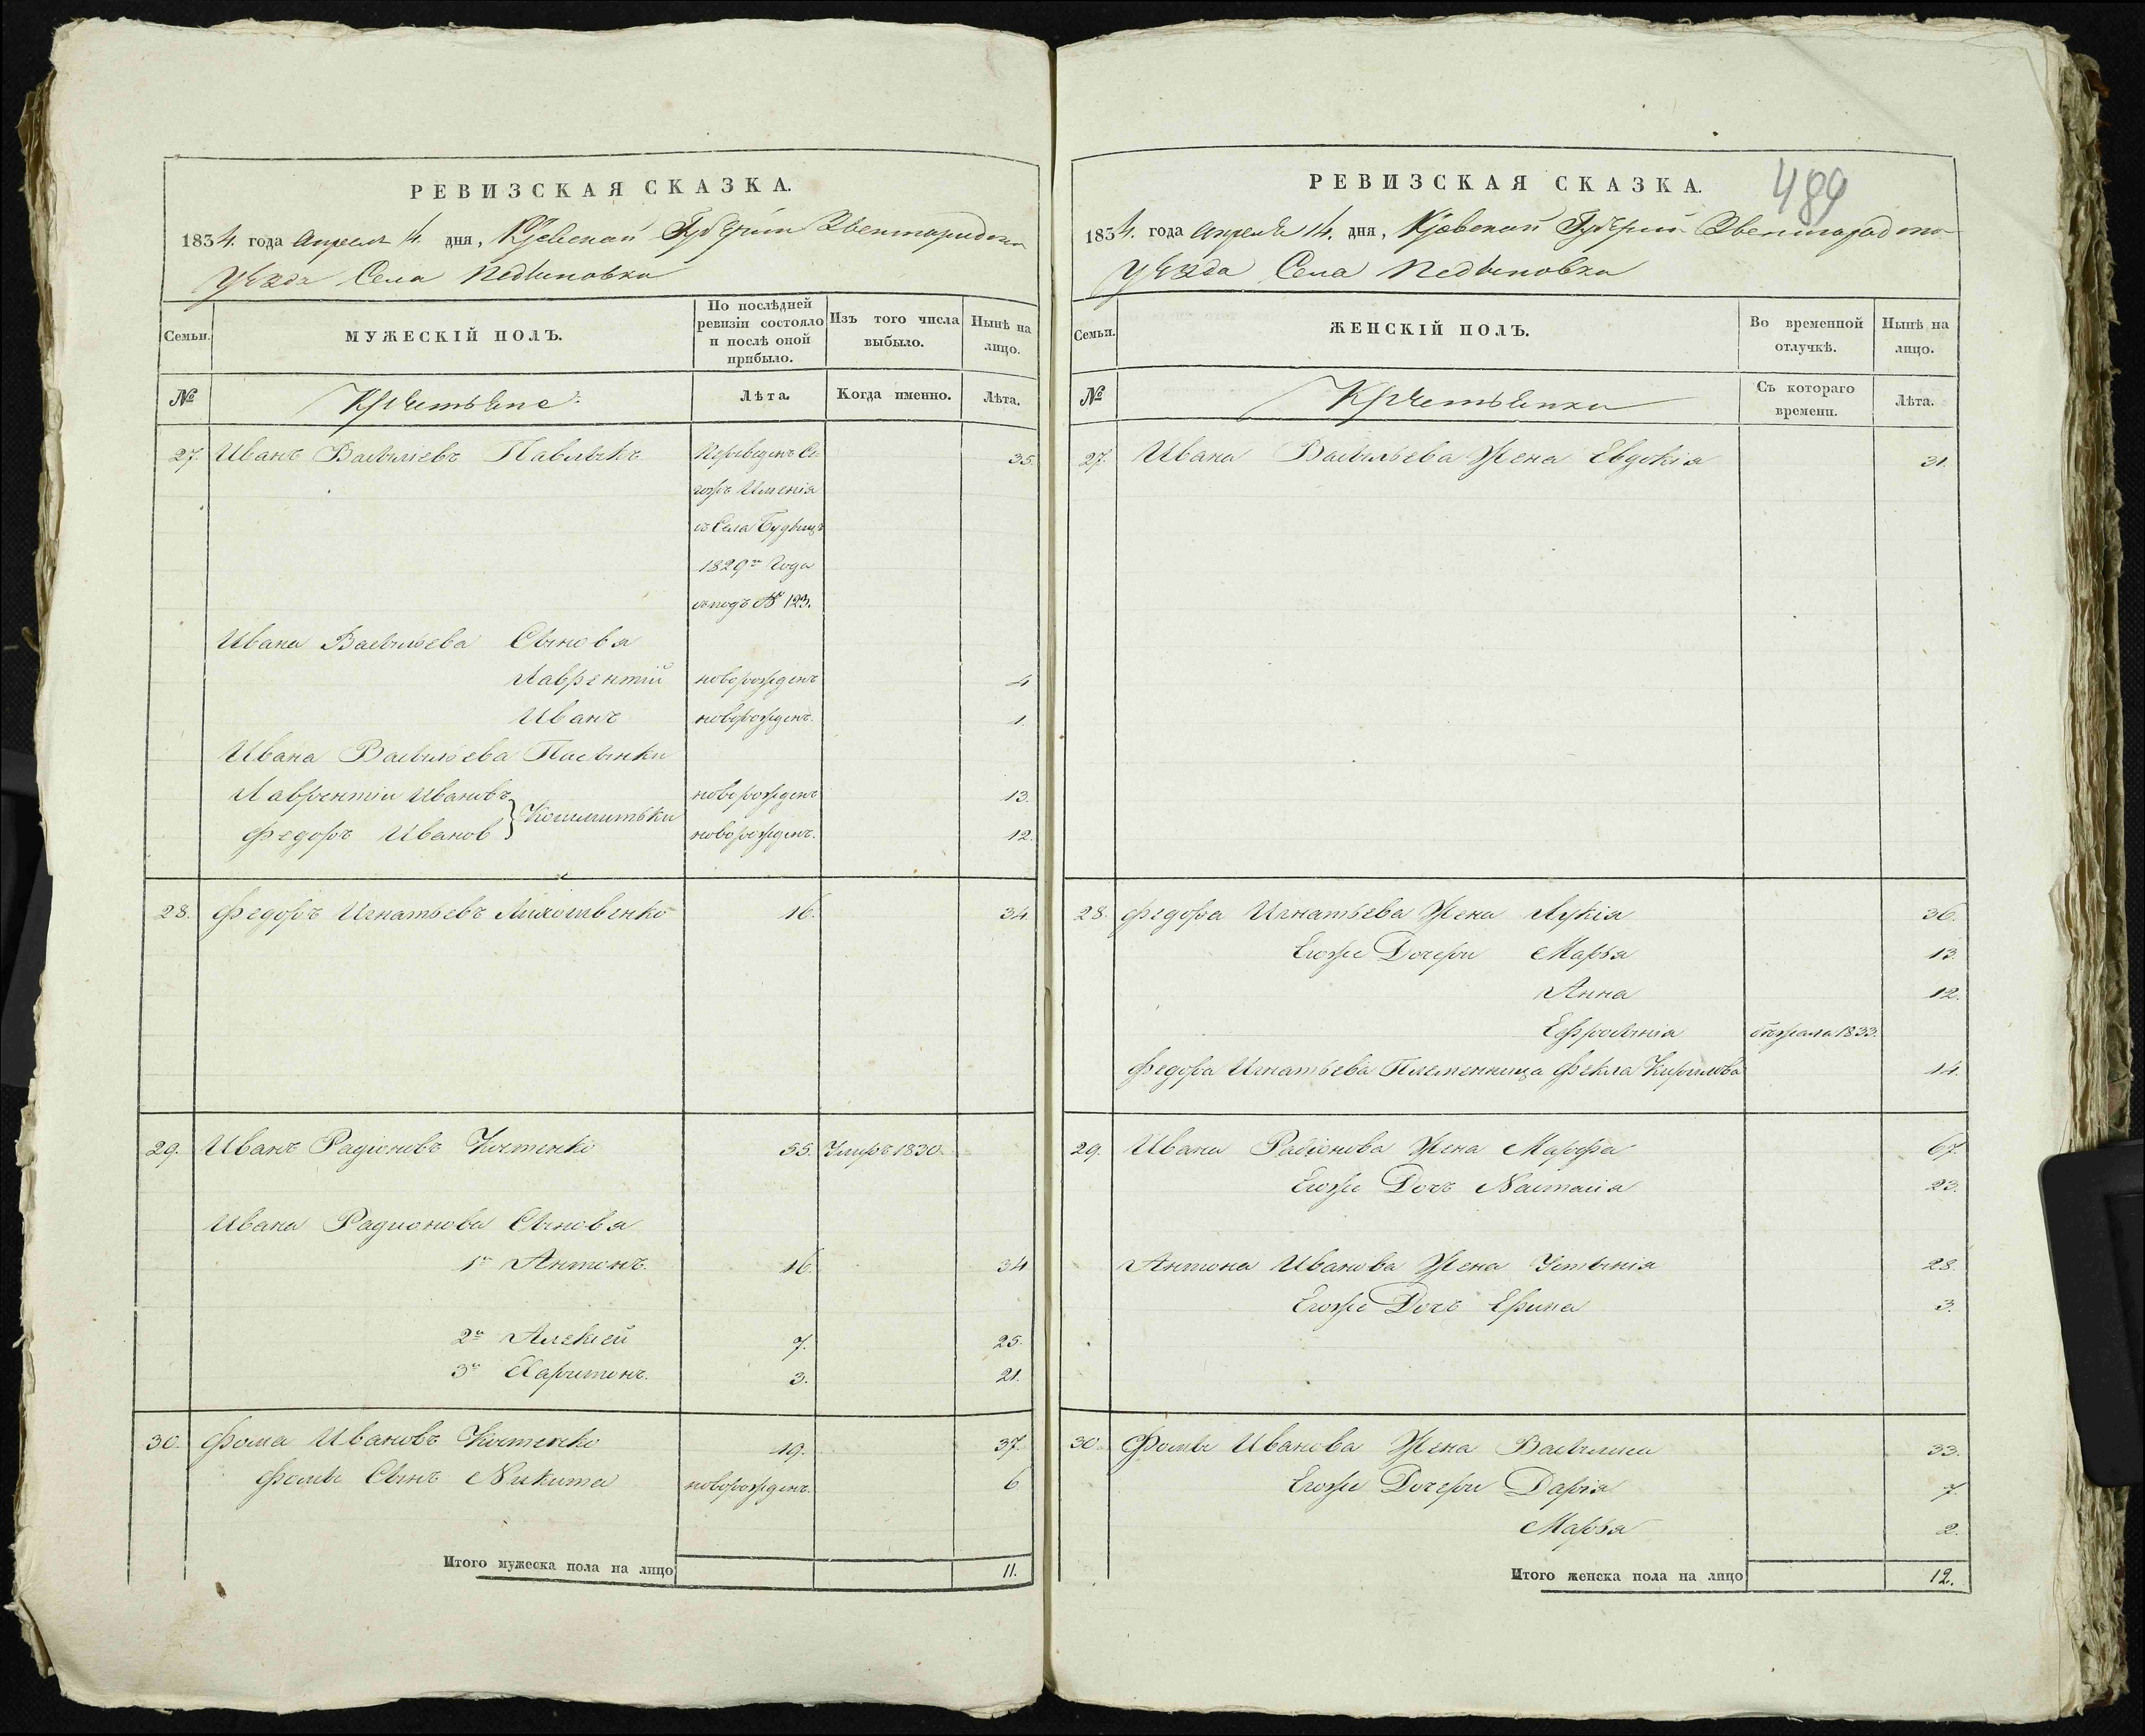 РЕВИЗСКАЯ СКАЗКА.
1834. года Апреля 14. дня, Кіевской Губерніи Звенигородскаго
уезда Села Педыновки
Семьи.
МУЖЕСКІЙ ПОЛЪ.
По послѣдней ревизіи состояло и послѣ оной прибыло.
Изъ того числа выбыло.
Нынѣ на лицо.
№
Крестьяне
Лѣта.
Когда именно.
Лѣта.
27. Иванъ Васильевъ Павлыкъ Переведенъ Се- 35.
гожъ Имения
съ Села Будыщъ
1829го Года
съ подъ № 123.
Ивана Васильева Сыновья
Лаврентій новорожденъ 4
Иванъ новорожденъ. 1.
Ивана Васильева Пасынки
Лаврентіи Ивановъ новорожденъ 13.
Федоръ Иванов новорожденъ. 12.
28. Федоръ Игнатьевъ 16. 34.
29. Иванъ Радіоновъ Костенко 55. Умеръ 1830.
Ивана Радионова Сыновья
1й Антонъ. 16. 34
2й Алексей 7. 25.
3й Харитонъ. 3. 21.
30. Фома Ивановъ Костенко 19. 37.
Фомы Сынъ Никита новорожденъ. 6.
Итого мужеска пола на лицо 11.
РЕВИЗСКАЯ СКАЗКА.
489
1834. года Апреля 14. дня, Кіевской Губерніи Звенигородскаго
уезда Села Педыновки
Семьи.
ЖЕНСКІЙ ПОЛЪ.
Во временной отлучкѣ.
Нынѣ на лицо.
№
Крестьянки
Съ котораго времени.
Лѣта.
27. Ивана Васильева Жена Евдокія 31.
28. Федора Игнатьева Жена Лукія 36.
Егоже Дочери Марья 13.
Анна 12.
Ефросинія 1833.
Федора Игнатьева Племенница Фекла Кирилова 14.
29. Ивана Радіонова Жена Марфа 67.
Егоже Дочь Настасія 23.
Антона Иванова Жена Устинія 28.
Егоже Дочь Ерина 3.
30. Фомы Иванова Жена Василиса 33.
Егоже Дочери Дарія 7.
Марья 2.
Итого женска пола на лицо 12.